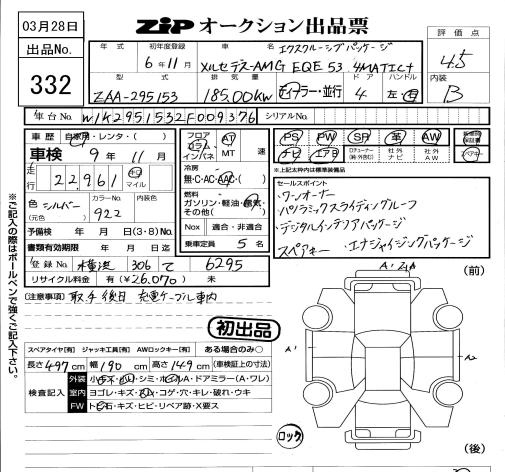 03月28日
出品No.
332
ZIP オークション出品票
年式 初年度登録 車名 評価点
6年11月 メルセデス・AMG EQE53 4MATIC+
エクスクルーシブパッケージ
4.5
型式 排気量 ドア ハンドル 内装
ZAA-295153 185.00kw ディーラー・並行 4 左・右 B
車台No. W1K2951532F009376 シリアルNo.
車歴 自家用・レンタ・( )
車検 9年 11月
走行 22,961 キロ マイル
色 シルバー (元色) カラーNo. 922 内装色
予備検 年 月 日(3・8)No.
書類有効期限 年 月 日迄
登録No. 横浜 306 て 6295
リサイクル料金 有(¥26,070) 未
フロア コラム インパネ AT MT 速
冷房 無・C・AC・AAC・( )
燃料 ガソリン・軽油・電気・その他( )
Nox 適合・非適合
乗車定員 5名
PS PW SR 革 AW
ナビ エアB TVチューナー(純・外含む) 社外ナビ 社外AW スペアキー
※上記太枠内は標準装備品
セールスポイント
・ワンオーナー
・パノラミックスライディングルーフ
・デジタルインテリアパッケージ
スペアキー ・エナジャイジングパッケージ
[注意事項] 取・手後日 充電ケーブル車内
初出品
スペアタイヤ[有] ジャッキ工具[有] AWロックキー[有] ある場合のみ○
長さ497cm 幅190cm 高さ149cm (車検証上の寸法)
検査記入
外装 小キズ・凹・シミ・ホイルA・ドアミラー(A・ワレ)
室内 ヨゴレ・キズ・スレ・コゲ・穴・キレ・破れ・ウキ
FW トビ石・キズ・ヒビ・リペア跡・X要ス
(前)
A'
ロック
(後)
※ご記入の際はボールペンで強くご記入下さい。